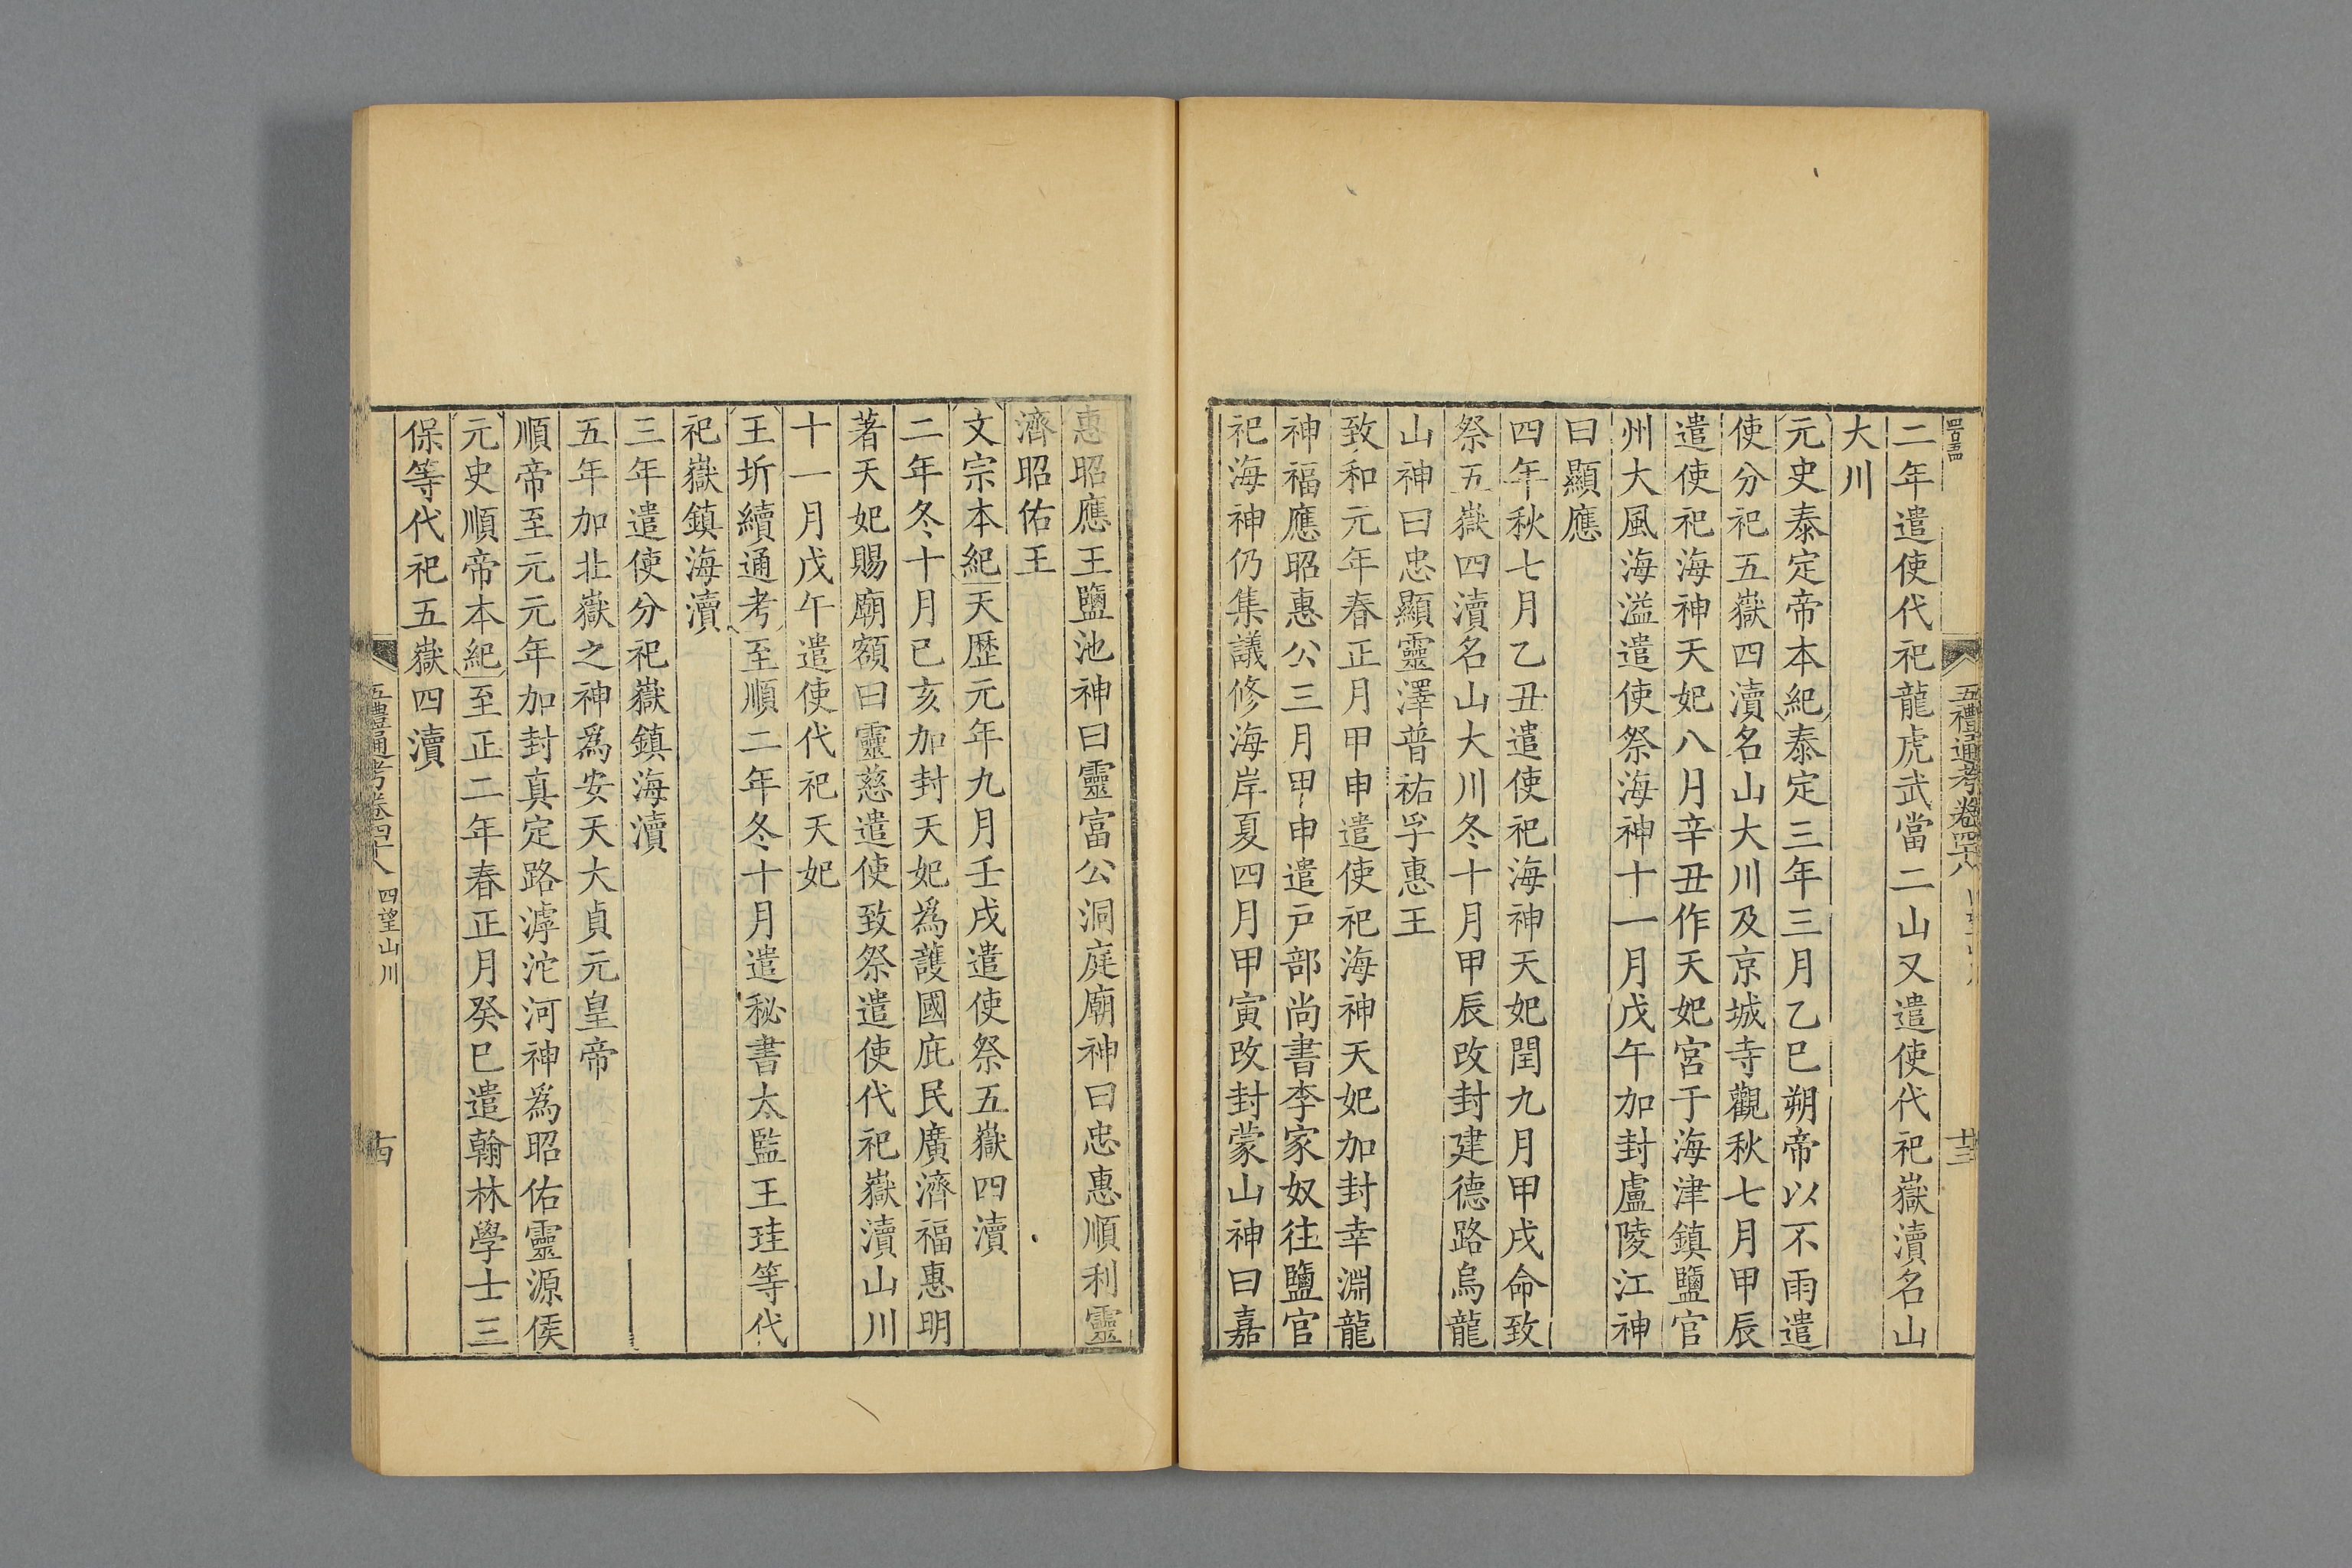 五禮通考卷四十八
十三
二年遣使代祀龍虎武當二山又遣使代祀嶽瀆名山
大川
元史泰定帝本紀泰定三年三月乙巳朔帝以不雨遣
使分祀五嶽四瀆名山大川及京城寺觀秋七月甲辰
遣使祀海神天妃八月辛丑作天妃宮于海津鎮鹽官
州大風海溢遣使祭海神十一月戊午加封廬陵江神
曰顯應
四年秋七月乙丑遣使祀海神天妃閏九月甲戌命致
祭五嶽四瀆名山大川冬十月甲辰改封建德路烏龍
山神曰忠顯靈澤普祐孚惠王
致和元年春正月甲申遣使祀海神天妃加封幸淵龍
神福應昭惠公三月甲申遣戸部尚書李家奴往鹽官
祀海神仍集議修海岸夏四月甲寅改封蒙山神曰嘉
惠昭應王鹽池神曰靈富公洞庭廟神曰忠惠順利靈
濟昭佑王
文宗本紀天歷元年九月壬戌遣使祭五嶽四瀆
二年冬十月已亥加封天妃爲護國庇民廣濟福惠明
著天妃賜廟額曰靈慈遣使致祭遣使代祀嶽瀆山川
十一月戊午遣使代祀天妃
王圻續通考至順二年冬十月遣秘書太監王珪等代
祀嶽鎮海瀆
三年遣使分祀嶽鎮海瀆
五年加北嶽之神爲安天大貞元皇帝
順帝至元元年加封真定路滹沱河神爲昭佑靈源侯
元史順帝本紀至正二年春正月癸巳遣翰林學士三
保等代祀五嶽四瀆
五禮通考卷四十八 四望山川
十四